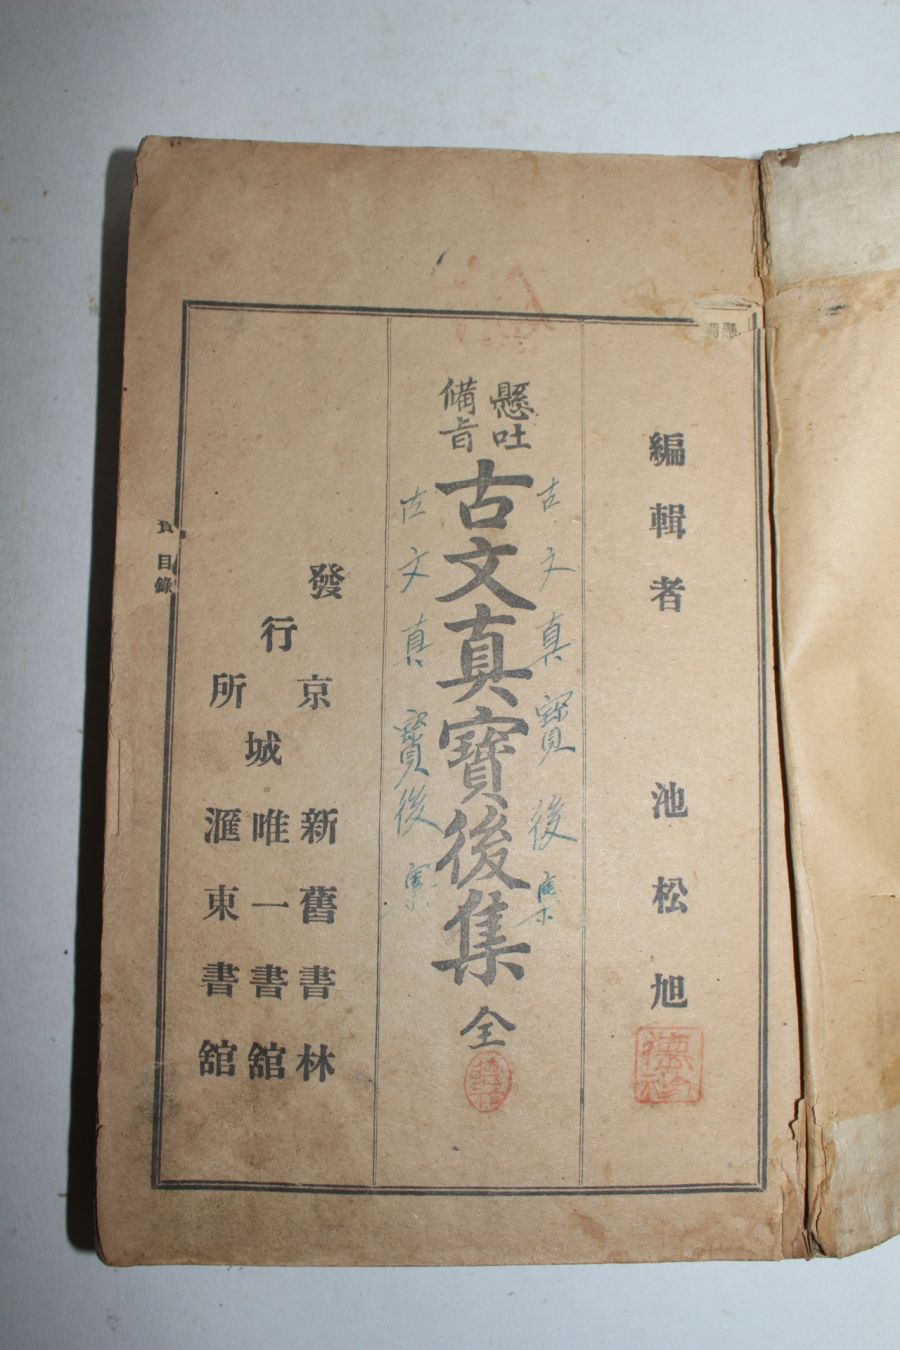 編輯者 池松旭
懸吐
備旨
古文真寶後集 全
古文真寶後集
古文真寶後集
發行所
京城
新舊書林
唯一書舘
滙東書舘
目錄